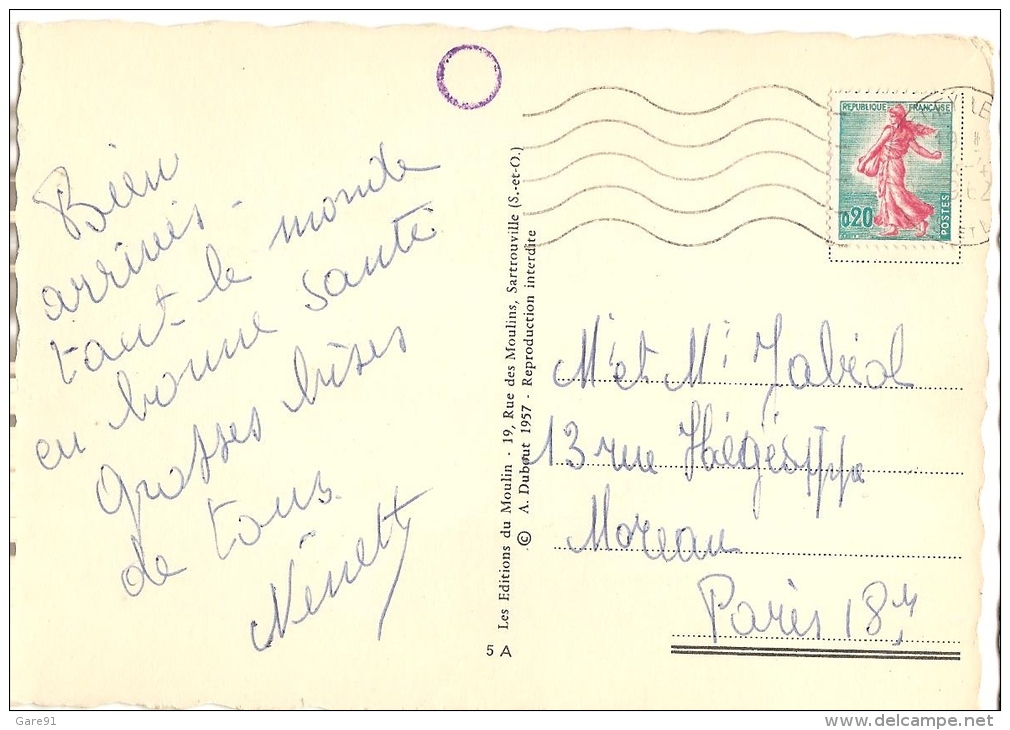 Bien
arrivés -
tout le monde
en bonne santé
Grosses bises
de tous.
Nénette
Les Editions du Moulin - 19, Rue des Moulins, Sartrouville (S.-et-O.)
© A. Dubout 1957 - Reproduction interdite
5 A
REPUBLIQUE FRANÇAISE
0,20
POSTES
Mr et Me Jabiol
13 rue Hégésippe
Moreau
Paris 18e
Gare91
delcampe.net